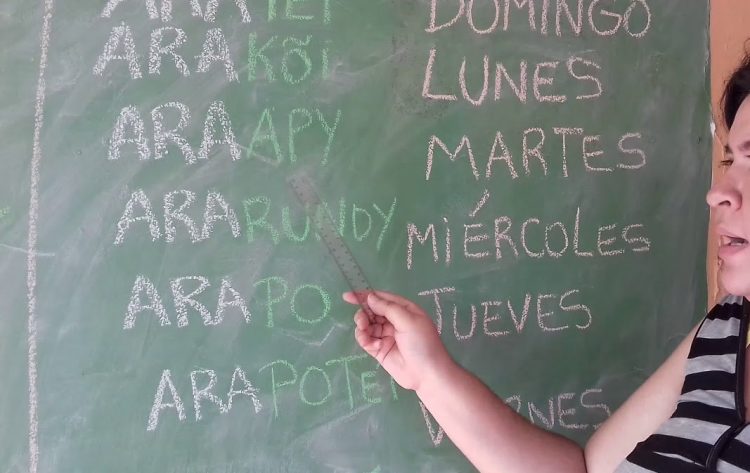 ARA DOMINGO
ARAKÕI LUNES
ARAAPY MARTES
ARARUNDY MIÉRCOLES
ARAPO JUEVES